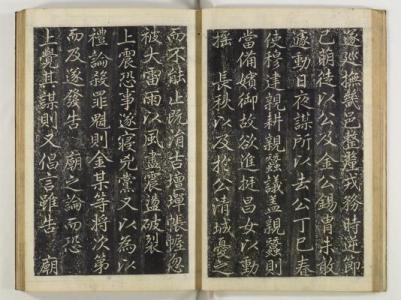 遂巡撫畿邑整釐戎務時逆節
已萌徒以公及金公錫胄未敢
遽動日夜謀所以去公丁巳春
使穆建親耕親蠶議盖親蠶則
當備嬪御故欲進挺昌女以動
搖 長秋以及於公清城憂之
而不能止既淯吉壇墠帳幄忽
被大雷雨以風盡震盪破裂
上震恐事遂寢兇黨又以為以
禮論殺罪魁則金某等將次第
而及遂發告 廟之論而恐
上覺其謀則又倡言雖告 廟